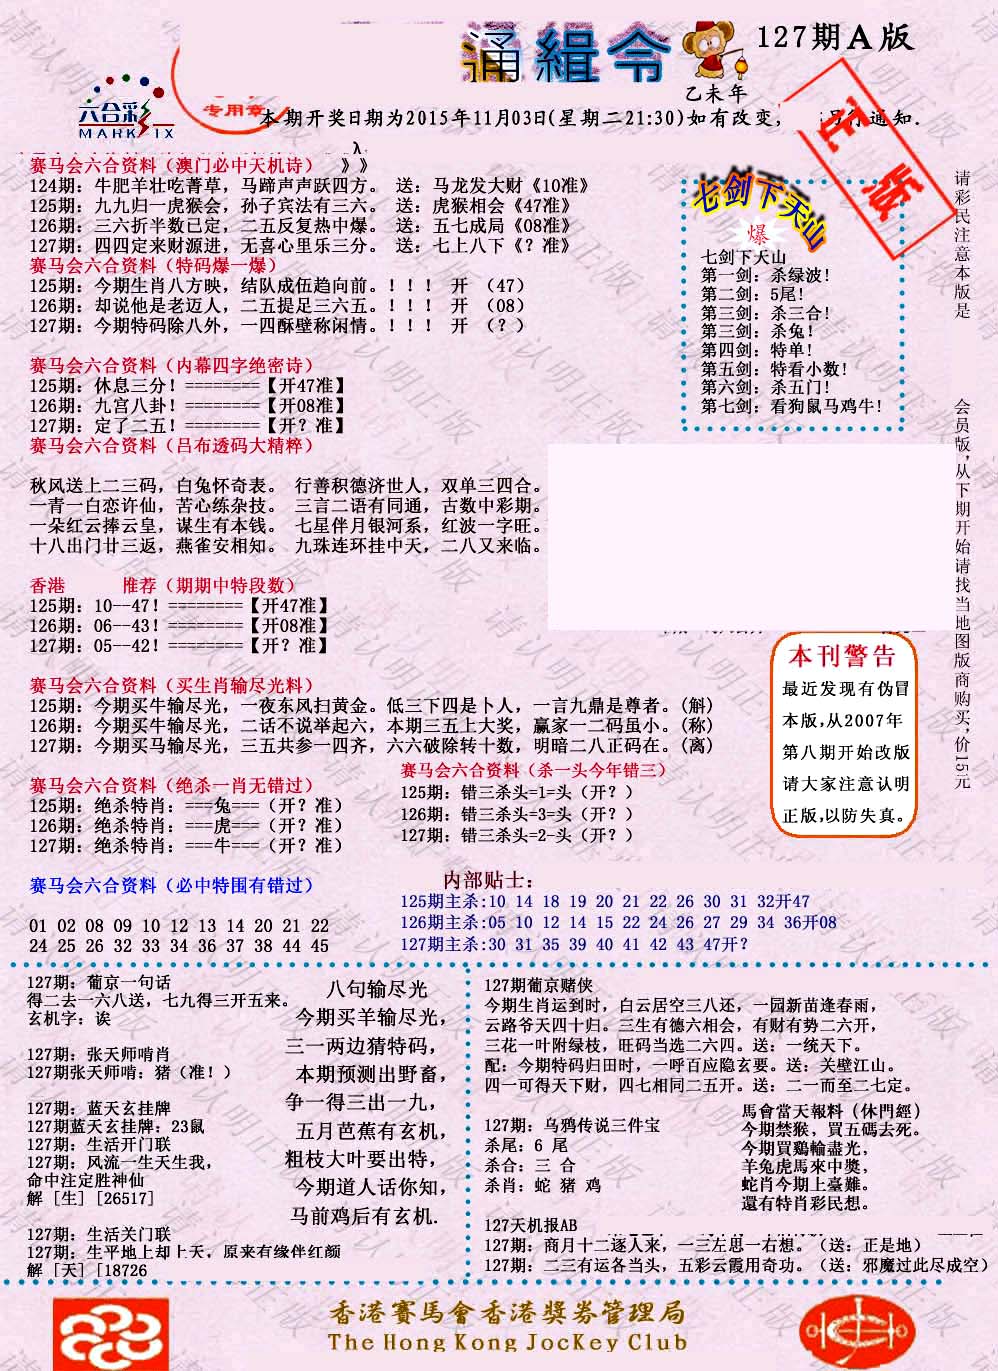 通緝令
127期A版
乙未年
六合彩
MARK SIX
专用章
本期开奖日期为2015年11月03日(星期二21:30)如有改变,
通知.
赛马会六合资料（澳门必中天机诗） 》》
124期: 牛肥羊壮吃菁草，马蹄声声跃四方。 送: 马龙发大财《10准》
125期: 九九归一虎猴会，孙子宾法有三六。 送: 虎猴相会《47准》
126期: 三六折半数已定，二五反复热中爆。 送: 五七成局《08准》
127期: 四四定来财源进，无喜心里乐三分。 送: 七上八下《? 准》
赛马会六合资料（特码爆一爆）
125期: 今期生肖八方映，结队成伍趋向前。！！！ 开 （47）
126期: 却说他是老迈人，二五提足三六五。！！！ 开 （08）
127期: 今期特码除八外，一四酥壁称闲情。！！！ 开 （? ）
赛马会六合资料（内幕四字绝密诗）
125期: 休息三分! ========【开47准】
126期: 九宫八卦! ========【开08准】
127期: 定了二五! ========【开? 准】
赛马会六合资料（吕布透码大精粹）
秋风送上二三码，白兔怀奇表。 行善积德济世人，双单三四合。
一青一白恋许仙，苦心练杂技。 三言二语有同通，古数中彩期。
一朵红云捧云皇，谋生有本钱。 七星伴月银河系，红波一字旺。
十八出门廿三返，燕雀安相知。 九珠连环挂中天，二八又来临。
七剑下天山
爆
七剑下天山
第一剑: 杀绿波!
第二剑: 5尾!
第三剑: 杀三合!
第三剑: 杀兔!
第四剑: 特单!
第五剑: 特看小数!
第六剑: 杀五门!
第七剑: 看狗鼠马鸡牛!
请彩民注意本版是
会员版,从下期开始请找当地图版商购买,价15元
香港 推荐（期期中特段数）
125期: 10--47! ========【开47准】
126期: 06--43! ========【开08准】
127期: 05--42! ========【开? 准】
赛马会六合资料（买生肖输尽光料）
125期: 今期买牛输尽光，一夜东风扫黄金。低三下四是卜人，一言九鼎是尊者。(斛)
126期: 今期买牛输尽光，二话不说举起六，本期三五上大奖，赢家一二码虽小。(称)
127期: 今期买马输尽光，三五共参一四齐，六六破除转十数，明暗二八正码在。(离)
本刊警告
最近发现有伪冒
本版,从2007年
第八期开始改版
请大家注意认明
正版,以防失真。
赛马会六合资料（绝杀一肖无错过）
125期: 绝杀特肖: ===兔===（开? 准）
126期: 绝杀特肖: ===虎===（开? 准）
127期: 绝杀特肖: ===牛===（开? 准）
赛马会六合资料（杀一头今年错三）
125期: 错三杀头=1=头（开? ）
126期: 错三杀头=3=头（开? ）
127期: 错三杀头=2-头（开? ）
赛马会六合资料（必中特围有错过）
01 02 08 09 10 12 13 14 20 21 22
24 25 26 32 33 34 36 37 38 44 45
内部贴士:
125期主杀:10 14 18 19 20 21 22 26 30 31 32开47
126期主杀:05 10 12 14 15 22 24 26 27 29 34 36开08
127期主杀:30 31 35 39 40 41 42 43 47开?
127期: 葡京一句话
得二去一六八送，七九得三开五来。
玄机字: 诶
127期: 张天师啃肖
127期张天师啃: 猪（准! ）
127期: 蓝天玄挂牌
127期蓝天玄挂牌: 23鼠
127期: 生活开门联
127期: 风流一生天生我，
命中注定胜神仙
解 [生] [26517]
127期: 生活关门联
127期: 生平地上却上天，原来有缘伴红颜
解 [天] [18726
八句输尽光
今期买羊输尽光，
三一两边猜特码，
本期预测出野畜，
争一得三出一九，
五月芭蕉有玄机，
粗枝大叶要出特，
今期道人话你知，
马前鸡后有玄机.
127期葡京赌侠
今期生肖运到时，白云居空三八还，一园新苗逢春雨，
云路爷天四十归。三生有德六相会，有财有势二六开，
三花一叶附绿枝，旺码当选二六四。送: 一统天下。
配: 今期特码归田时，一呼百应隐玄要。送: 关壁江山。
四一可得天下财，四七相同二五开。送: 二一而至二七定。
127期: 乌鸦传说三件宝
杀尾: 6 尾
杀合: 三 合
杀肖: 蛇 猪 鸡
馬會當天報料（休門經）
今期禁猴，買五碼去死。
今期買鷄輸盡光，
羊兔虎馬來中獎，
蛇肖今期上臺難。
還有特肖彩民想。
127天机报AB
127期: 商月十二逐人来，一三左思一右想。（送: 正是地）
127期: 二三有运各当头，五彩云霞用奇功。（送: 邪魔过此尽成空）
香港賽馬會香港獎券管理局
The Hong Kong JocKey Club